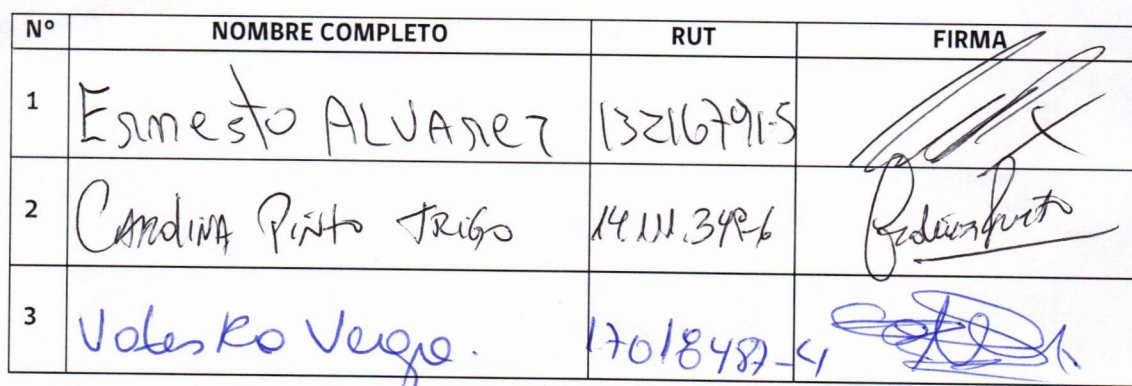 N° NOMBRE COMPLETO RUT FIRMA
1 Ernesto ALVArez 13216791-5
2 CAROLINA PINto TRIGO 14.111.349-6
3 Valeska Vergara. 17018487-4